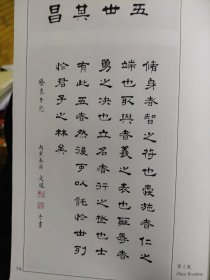 五世其昌
脩身者智之符也愛施者仁之
端也取與者義之表也恥辱者
勇之決也立名者行之極也士
有此五者然後可以託於世列
於君子之林矣
74